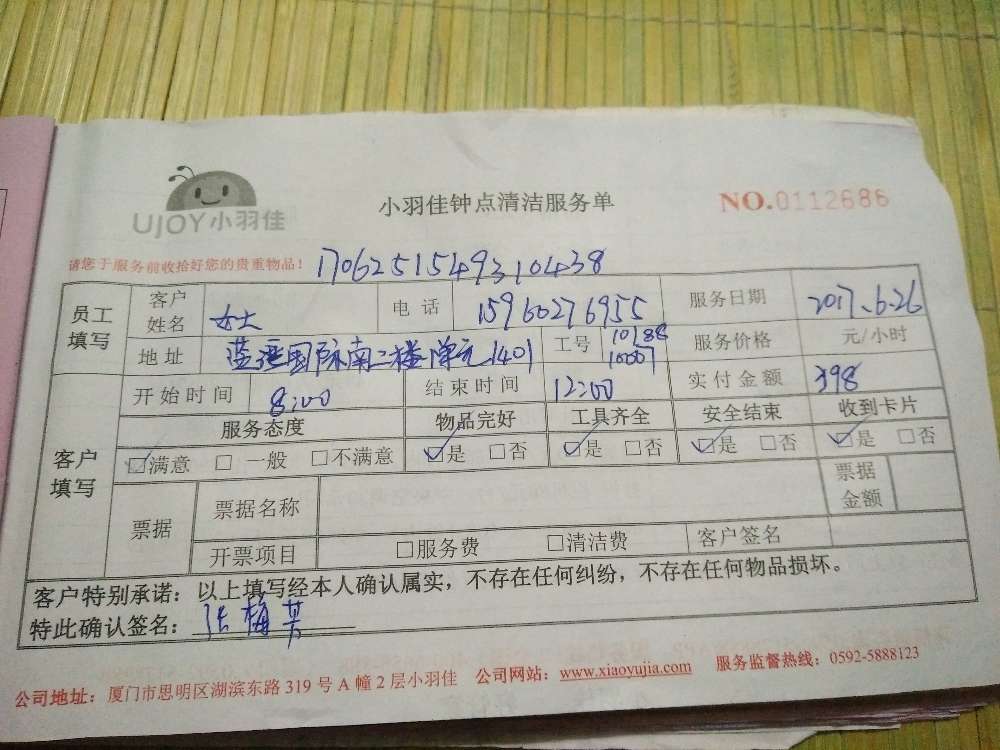 UJOY小羽佳
小羽佳钟点清洁服务单
NO.0112686
请您于服务前收拾好您的贵重物品！
170625154931 0438
员工填写 客户姓名 女士 电话 15960276955 服务日期 2017.6.26
地址 国际南二楼单元1401 工号 10188 10007 服务价格 元/小时
客户填写 开始时间 8:00 结束时间 12:00 实付金额 398
服务态度 物品完好 工具齐全 安全结束 收到卡片
☑满意 □一般 □不满意 ☑是 □否 ☑是 □否 ☑是 □否 ☑是 □否
票据 票据名称 票据金额
开票项目 □服务费 □清洁费 客户签名
客户特别承诺：以上填写经本人确认属实，不存在任何纠纷，不存在任何物品损坏。
特此确认签名：张梅菁
公司地址：厦门市思明区湖滨东路319号A幢2层小羽佳 公司网站：www.xiaoyujia.com 服务监督热线：0592-5888123